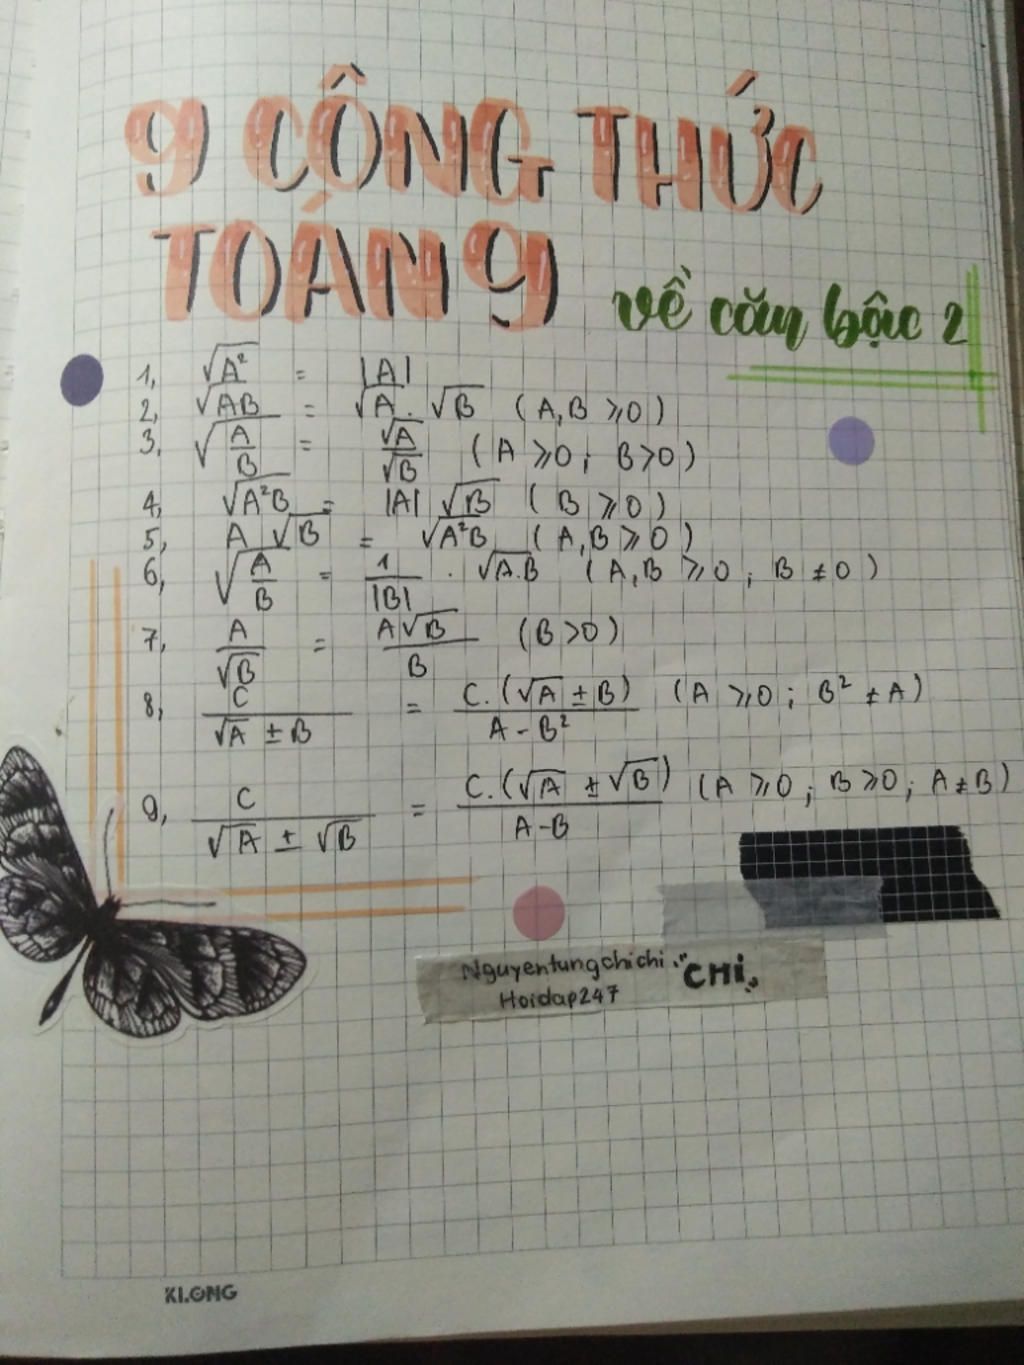 9 CÔNG THỨC
TOÁN 9 về căn bậc 2
1, √A² = |A|
2, √AB = √A . √B (A,B ⩾0)
3, √(A/B) = √A/√B (A ⩾0; B>0)
4, √A²B = |A| √B (B ⩾0)
5, A √B = √A²B (A,B ⩾0)
6, √(A/B) = 1/|B| . √A.B (A,B ⩾0; B ≠0)
7, A/√B = A√B/B (B>0)
8, C/(√A ± B) = C.(√A ± B)/(A - B²) (A ⩾0; B² ≠ A)
9, C/(√A ± √B) = C.(√A ± √B)/(A-B) (A ⩾0; B ⩾0; A ≠ B)
Nguyentungchichi "CHi"
Hoidap247
KLONG